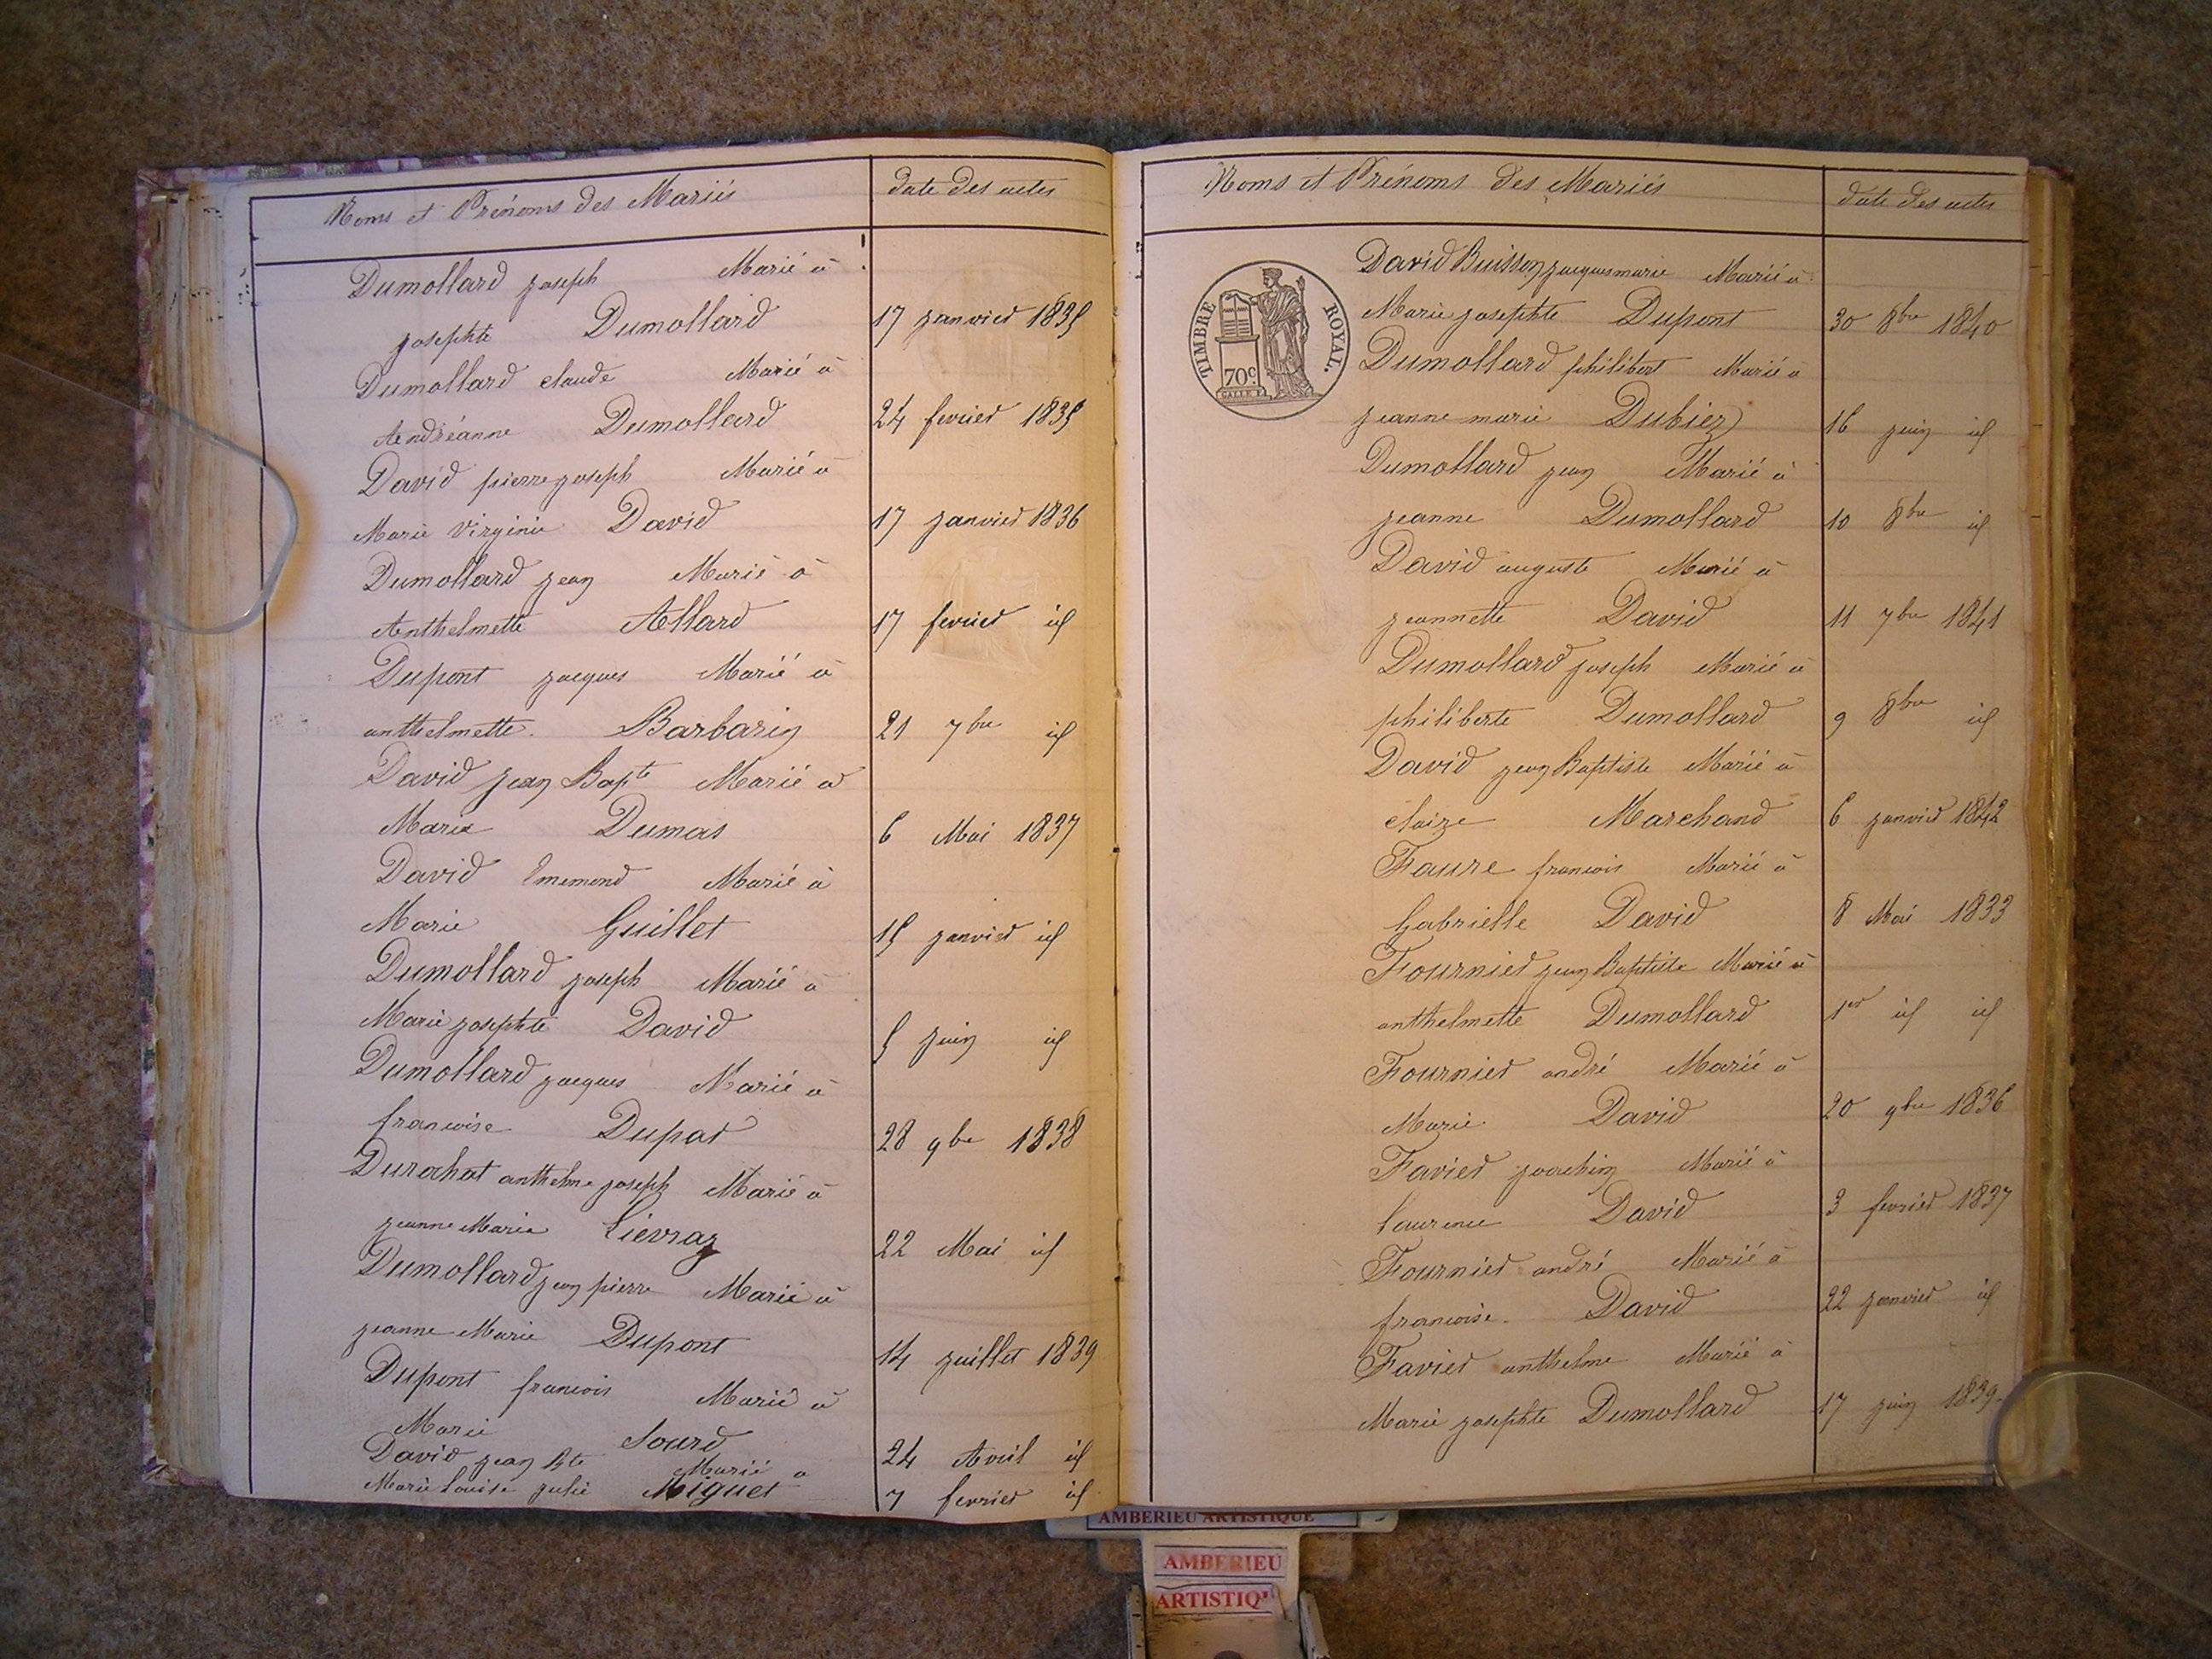 Noms et Prénoms des Mariés date des actes
Dumollard joseph Marié à
josephte Dumollard 17 janvier 1835
Dumollard claude Marié à
Andréanne Dumollard 24 fevrier 1835
David pierre joseph Marié à
Marie Virginie David 17 janvier 1836
Dumollard jean Marié à
Anthelmette Allard 17 fevrier id
Dupont jacques Marié à
anthelmette Barbarin 21 7bre id
David jean Bapte Marié à
Marie Dumas 6 Mai 1837
David Ememond Marié à
Marie Guillet 15 janvier id
Dumollard joseph Marié à
Marie josephte David 5 juin id
Dumollard jacques Marié à
francoise Dupas 28 9bre 1838
Durochat anthelme joseph Marié à
jeanne Marie Lievraz 22 Mai id
Dumollard jean pierre Marié à
jeanne Marie Dupont 14 juillet 1839
Dupont francois Marié à
Marie Sourd 24 Avril id
David jean Bte Marié à
Marie Louise julie Miguet 7 fevrier id
Noms et Prénoms des Mariés date des actes
TIMBRE ROYAL.
70c.
David Buisson jacques marie Marié à
Marie josephte Dupont 30 8bre 1840
Dumollard philibert Marié à
jeanne marie Dubiez 16 juin id
Dumollard jean Marié à
jeanne Dumollard 10 8bre id
David auguste Marié à
jeannette David 11 7bre 1841
Dumollard joseph Marié à
philiberte Dumollard 9 8bre id
David jean Baptiste Marié à
claize Marchand 6 janvier 1842
Faure francois Marié à
Gabrielle David 8 Mai 1833
Fournier jean Baptiste Marié à
anthelmette Dumollard 1er id id
Fournier andré Marié à
Marie David 20 9bre 1836
Favier joachim Marié à
Laurence David 3 fevrier 1837
Fournier andré Marié à
francoise David 22 janvier id
Favier anthelme Marié à
Marie josephte Dumollard 17 juin 1839
AMBERIEU ARTISTIQUE
AMBERIEU
ARTISTIQ